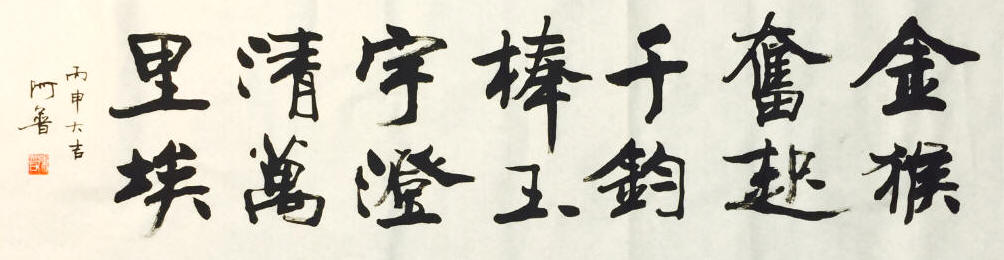 金猴
奮起
千鈞
棒玉
宇澄
清萬
里埃
丙申大吉
阿魯